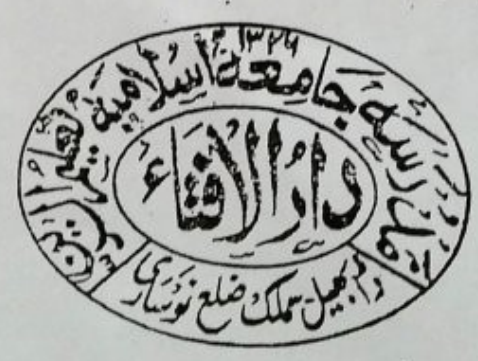 ۱۳۲۶
مدرسه جامعة اسلامية تعليم الدين
دار الافتاء
ڈابھیل سملک ضلع نوساری